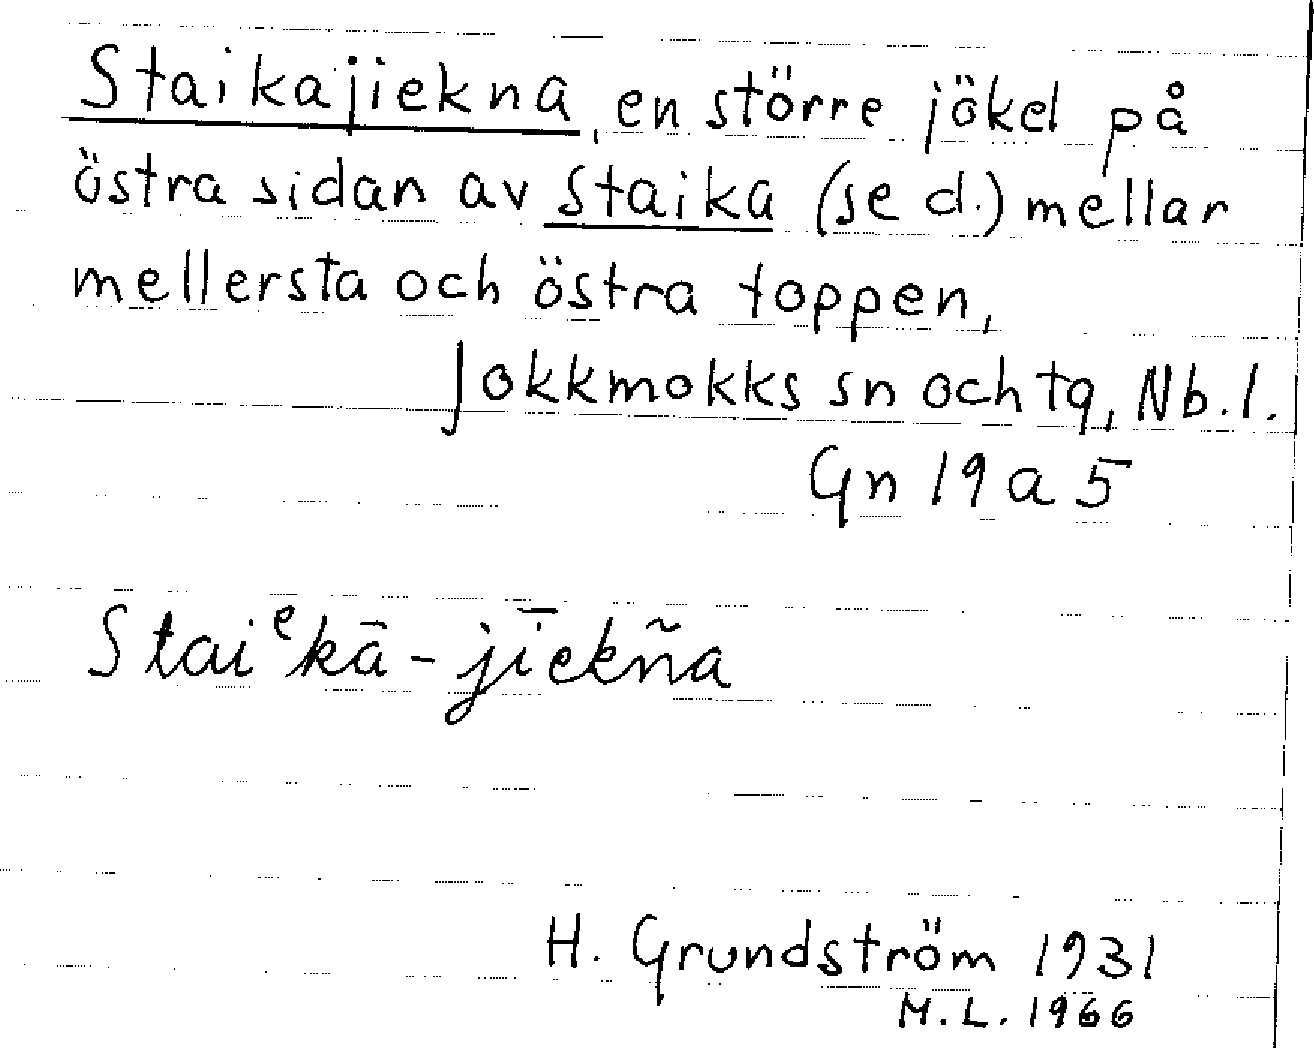 Staikajiekna, en större jökel på
östra sidan av Staika (se d.) mellan
mellersta och östra toppen,
Jokkmokks sn och tg, Nb.l.
Gn 19 a 5
Staiᵉkā-jīekña
H. Grundström 1931
M.L. 1966